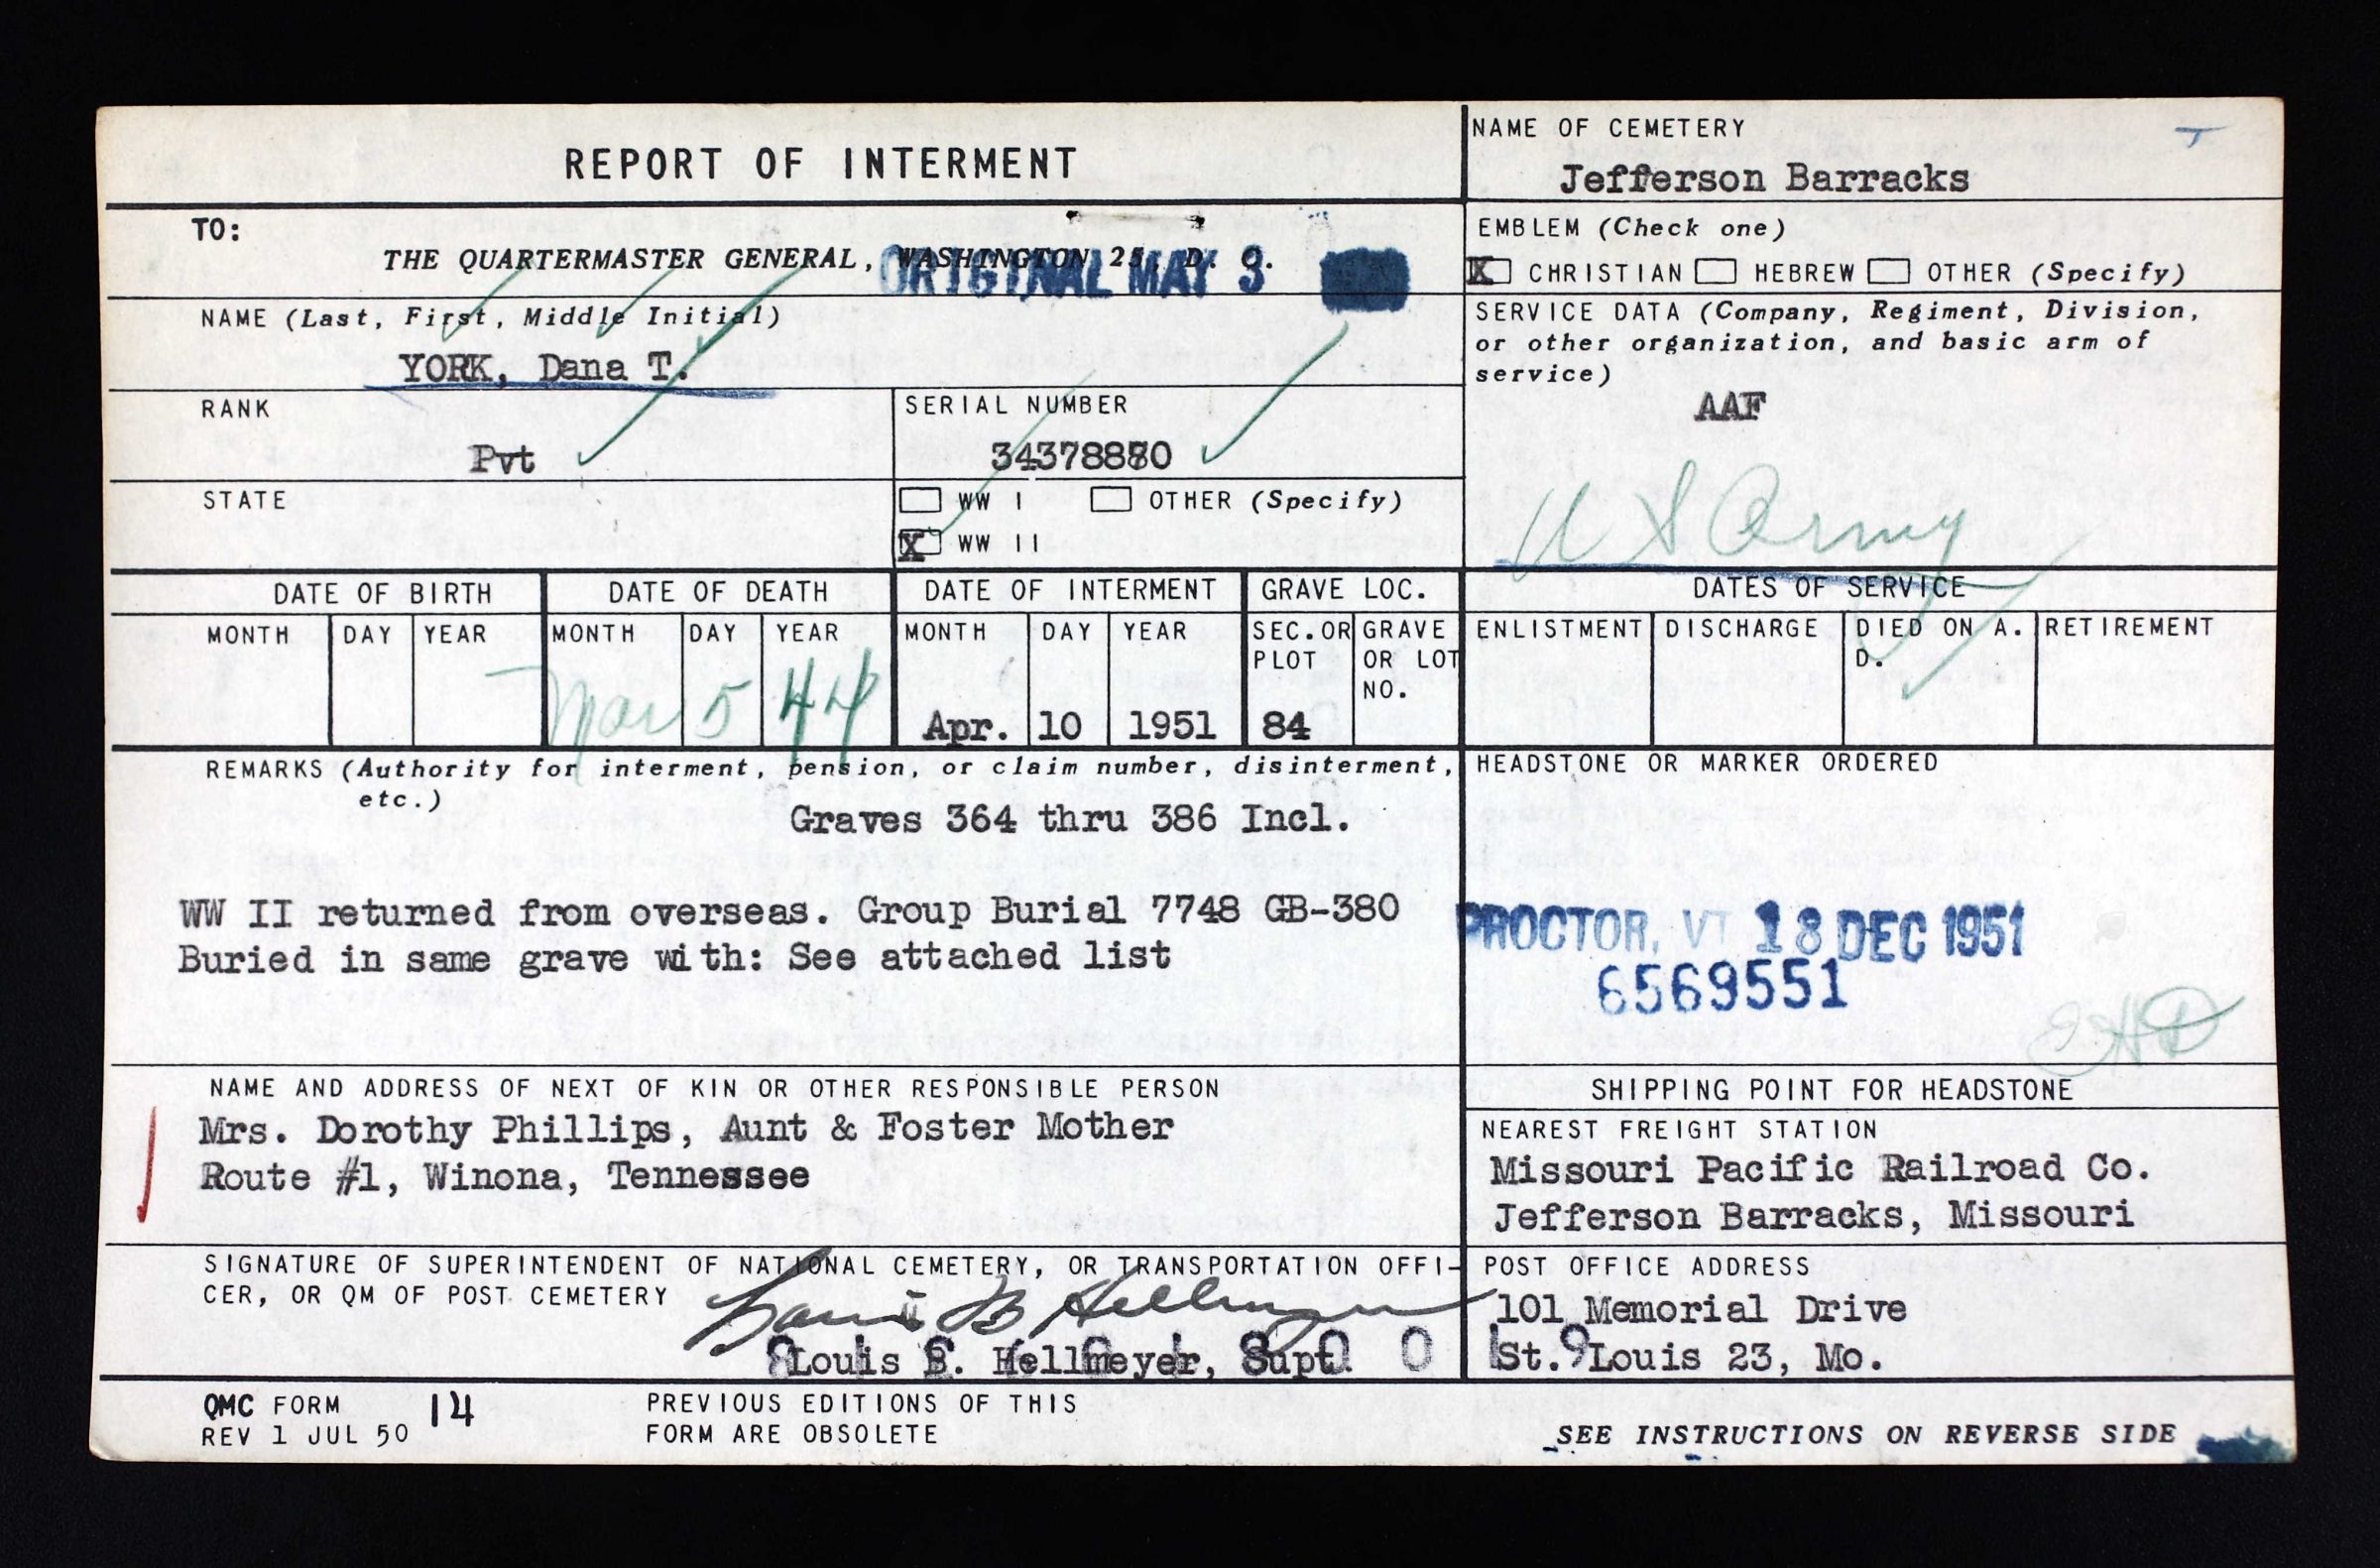 REPORT OF INTERMENT
NAME OF CEMETERY
Jefferson Barracks
TO:
THE QUARTERMASTER GENERAL, WASHINGTON 25, D. C.
ORIGINAL MAY 3
EMBLEM (Check one)
X CHRISTIAN HEBREW OTHER (Specify)
NAME (Last, First, Middle Initial)
YORK, Dana T.
SERVICE DATA (Company, Regiment, Division,
or other organization, and basic arm of
service)
AAF
U S Army
RANK
Pvt
SERIAL NUMBER
34378880
STATE
WW I OTHER (Specify)
X WW II
DATE OF BIRTH
MONTH DAY YEAR
DATE OF DEATH
MONTH DAY YEAR
Mar 5 44
DATE OF INTERMENT
MONTH DAY YEAR
Apr. 10 1951
GRAVE LOC.
SEC. OR PLOT
84
GRAVE OR LOT NO.
DATES OF SERVICE
ENLISTMENT DISCHARGE DIED ON A. D. RETIREMENT
REMARKS (Authority for interment, pension, or claim number, disinterment,
etc.)
Graves 364 thru 386 Incl.
WW II returned from overseas. Group Burial 7748 GB-380
Buried in same grave with: See attached list
HEADSTONE OR MARKER ORDERED
PROCTOR, VT 18 DEC 1951
6569551
EHD
NAME AND ADDRESS OF NEXT OF KIN OR OTHER RESPONSIBLE PERSON
Mrs. Dorothy Phillips, Aunt & Foster Mother
Route #1, Winona, Tennessee
SHIPPING POINT FOR HEADSTONE
NEAREST FREIGHT STATION
Missouri Pacific Railroad Co.
Jefferson Barracks, Missouri
SIGNATURE OF SUPERINTENDENT OF NATIONAL CEMETERY, OR TRANSPORTATION OFFI-
CER, OR QM OF POST CEMETERY
Louis B Hellmeyer
Louis B. Hellmeyer, Supt.
POST OFFICE ADDRESS
101 Memorial Drive
St. Louis 23, Mo.
QMC FORM 14
REV 1 JUL 50
PREVIOUS EDITIONS OF THIS
FORM ARE OBSOLETE
SEE INSTRUCTIONS ON REVERSE SIDE